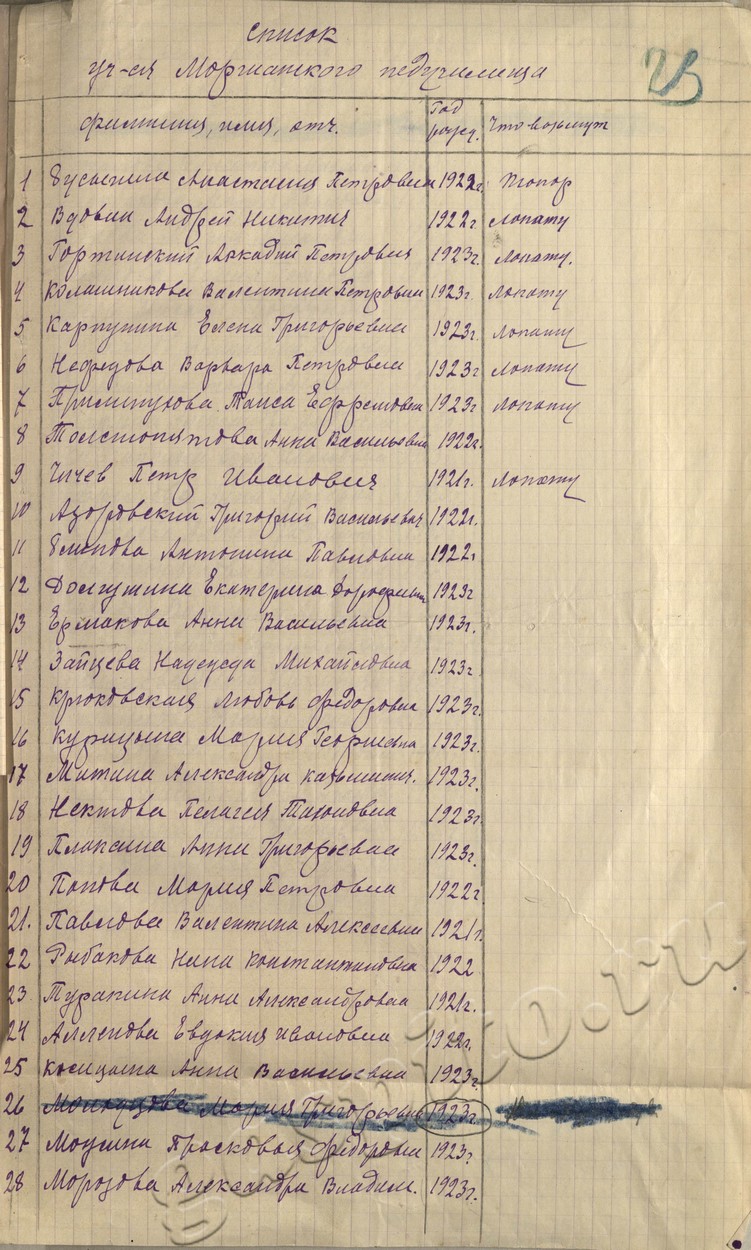 Список
уч-ся Моршанского педучилища
23
фамилия, имя, отч. Год рожд. Что возьмут
1 Бусыгина Анастасия Петровна 1922г. топор
2 Вдовин Андрей Никитич 1922г лопату
3 Горжинский Аркадий Петрович 1923г. лопату.
4 Колашникова Валентина Петровна 1923г. лопату
5 Карпунина Елена Григорьевна 1923г. лопату
6 Нефедова Варвара Петровна 1923г лопату
7 Таиса Ефремовна 1923г лопату
8 Толстопятова Анна Васильевна 1922г.
9 Чичев Петр Иванович 1921г. лопату
10 Азоровский Григорий Васильевич 1922г.
11 Блинова Антонина Павловна 1922г
12 Долгушина Екатерина 1923г
13 Ермакова Анна Васильевна 1923г.
14 Зайцева Надежда Михайловна 1923г
15 Крюковская Любовь Федоровна 1923г.
16 Курицына Мария Георгиевна 1923г.
17 Митина Александра 1923г.
18 Нектова Пелагея 1923г.
19 Плаксина Анна Григорьевна 1923г.
20 Попова Мария Петровна 1922г.
21. Павлова Валентина Алексеевна 1921г.
22 Рыбакова Нина Константиновна 1922
23 Туракина Анна Александровна 1921г.
24 Евдокия Ивановна 1922г.
25 Косицына Анна Васильевна 1923г.
26 Мария Григорьевна 1923г.
27 Прасковья Федоровна 1923г
28 Морозова Александра Владим. 1923г.